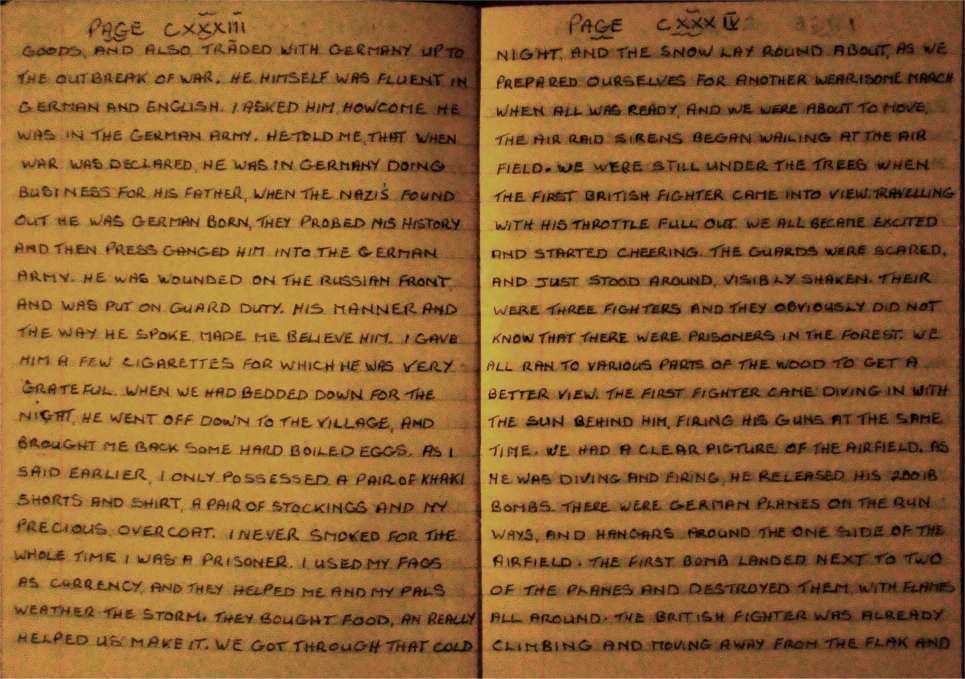 PAGE CXXXIII
GOODS, AND ALSO TRADED WITH GERMANY UP TO
THE OUTBREAK OF WAR. HE HIMSELF WAS FLUENT IN
GERMAN AND ENGLISH. I ASKED HIM, HOWCOME HE
WAS IN THE GERMAN ARMY. HE TOLD ME, THAT WHEN
WAR WAS DECLARED, HE WAS IN GERMANY DOING
BUSINESS FOR HIS FATHER, WHEN THE NAZI'S FOUND
OUT HE WAS GERMAN BORN, THEY PROBED HIS HISTORY
AND THEN PRESS GANGED HIM INTO THE GERMAN
ARMY. HE WAS WOUNDED ON THE RUSSIAN FRONT,
AND WAS PUT ON GUARD DUTY. HIS MANNER AND
THE WAY HE SPOKE, MADE ME BELIEVE HIM. I GAVE
HIM A FEW CIGARETTES FOR WHICH HE WAS VERY
GRATEFUL. WHEN WE HAD BEDDED DOWN FOR THE
NIGHT, HE WENT OFF DOWN TO THE VILLAGE, AND
BROUGHT ME BACK SOME HARD BOILED EGGS. AS I
SAID EARLIER, I ONLY POSSESSED A PAIR OF KHAKI
SHORTS AND SHIRT, A PAIR OF STOCKINGS AND MY
PRECIOUS OVERCOAT. I NEVER SMOKED FOR THE
WHOLE TIME I WAS A PRISONER. I USED MY FAGS
AS CURRENCY, AND THEY HELPED ME AND MY PALS
WEATHER THE STORM. THEY BOUGHT FOOD, AN REALLY
HELPED US MAKE IT. WE GOT THROUGH THAT COLD
PAGE CXXXIV
NIGHT, AND THE SNOW LAY ROUND ABOUT, AS WE
PREPARED OURSELVES FOR ANOTHER WEARISOME MARCH
WHEN ALL WAS READY, AND WE WERE ABOUT TO MOVE,
THE AIR RAID SIRENS BEGAN WAILING AT THE AIR
FIELD. WE WERE STILL UNDER THE TREES WHEN
THE FIRST BRITISH FIGHTER CAME INTO VIEW. TRAVELLING
WITH HIS THROTTLE FULL OUT. WE ALL BECAME EXCITED
AND STARTED CHEERING. THE GUARDS WERE SCARED,
AND JUST STOOD AROUND, VISIBLY SHAKEN. THEIR
WERE THREE FIGHTERS AND THEY OBVIOUSLY DID NOT
KNOW THAT THERE WERE PRISONERS IN THE FOREST. WE
ALL RAN TO VARIOUS PARTS OF THE WOOD TO GET A
BETTER VIEW. THE FIRST FIGHTER CAME DIVING IN WITH
THE SUN BEHIND HIM, FIRING HIS GUNS AT THE SAME
TIME. WE HAD A CLEAR PICTURE OF THE AIRFIELD. AS
HE WAS DIVING AND FIRING, HE RELEASED HIS 200lB
BOMBS. THERE WERE GERMAN PLANES ON THE RUN
WAYS, AND HANGARS AROUND THE ONE SIDE OF THE
AIRFIELD. THE FIRST BOMB LANDED NEXT TO TWO
OF THE PLANES AND DESTROYED THEM, WITH FLAMES
ALL AROUND. THE BRITISH FIGHTER WAS ALREADY
CLIMBING AND MOVING AWAY FROM THE FLAK AND